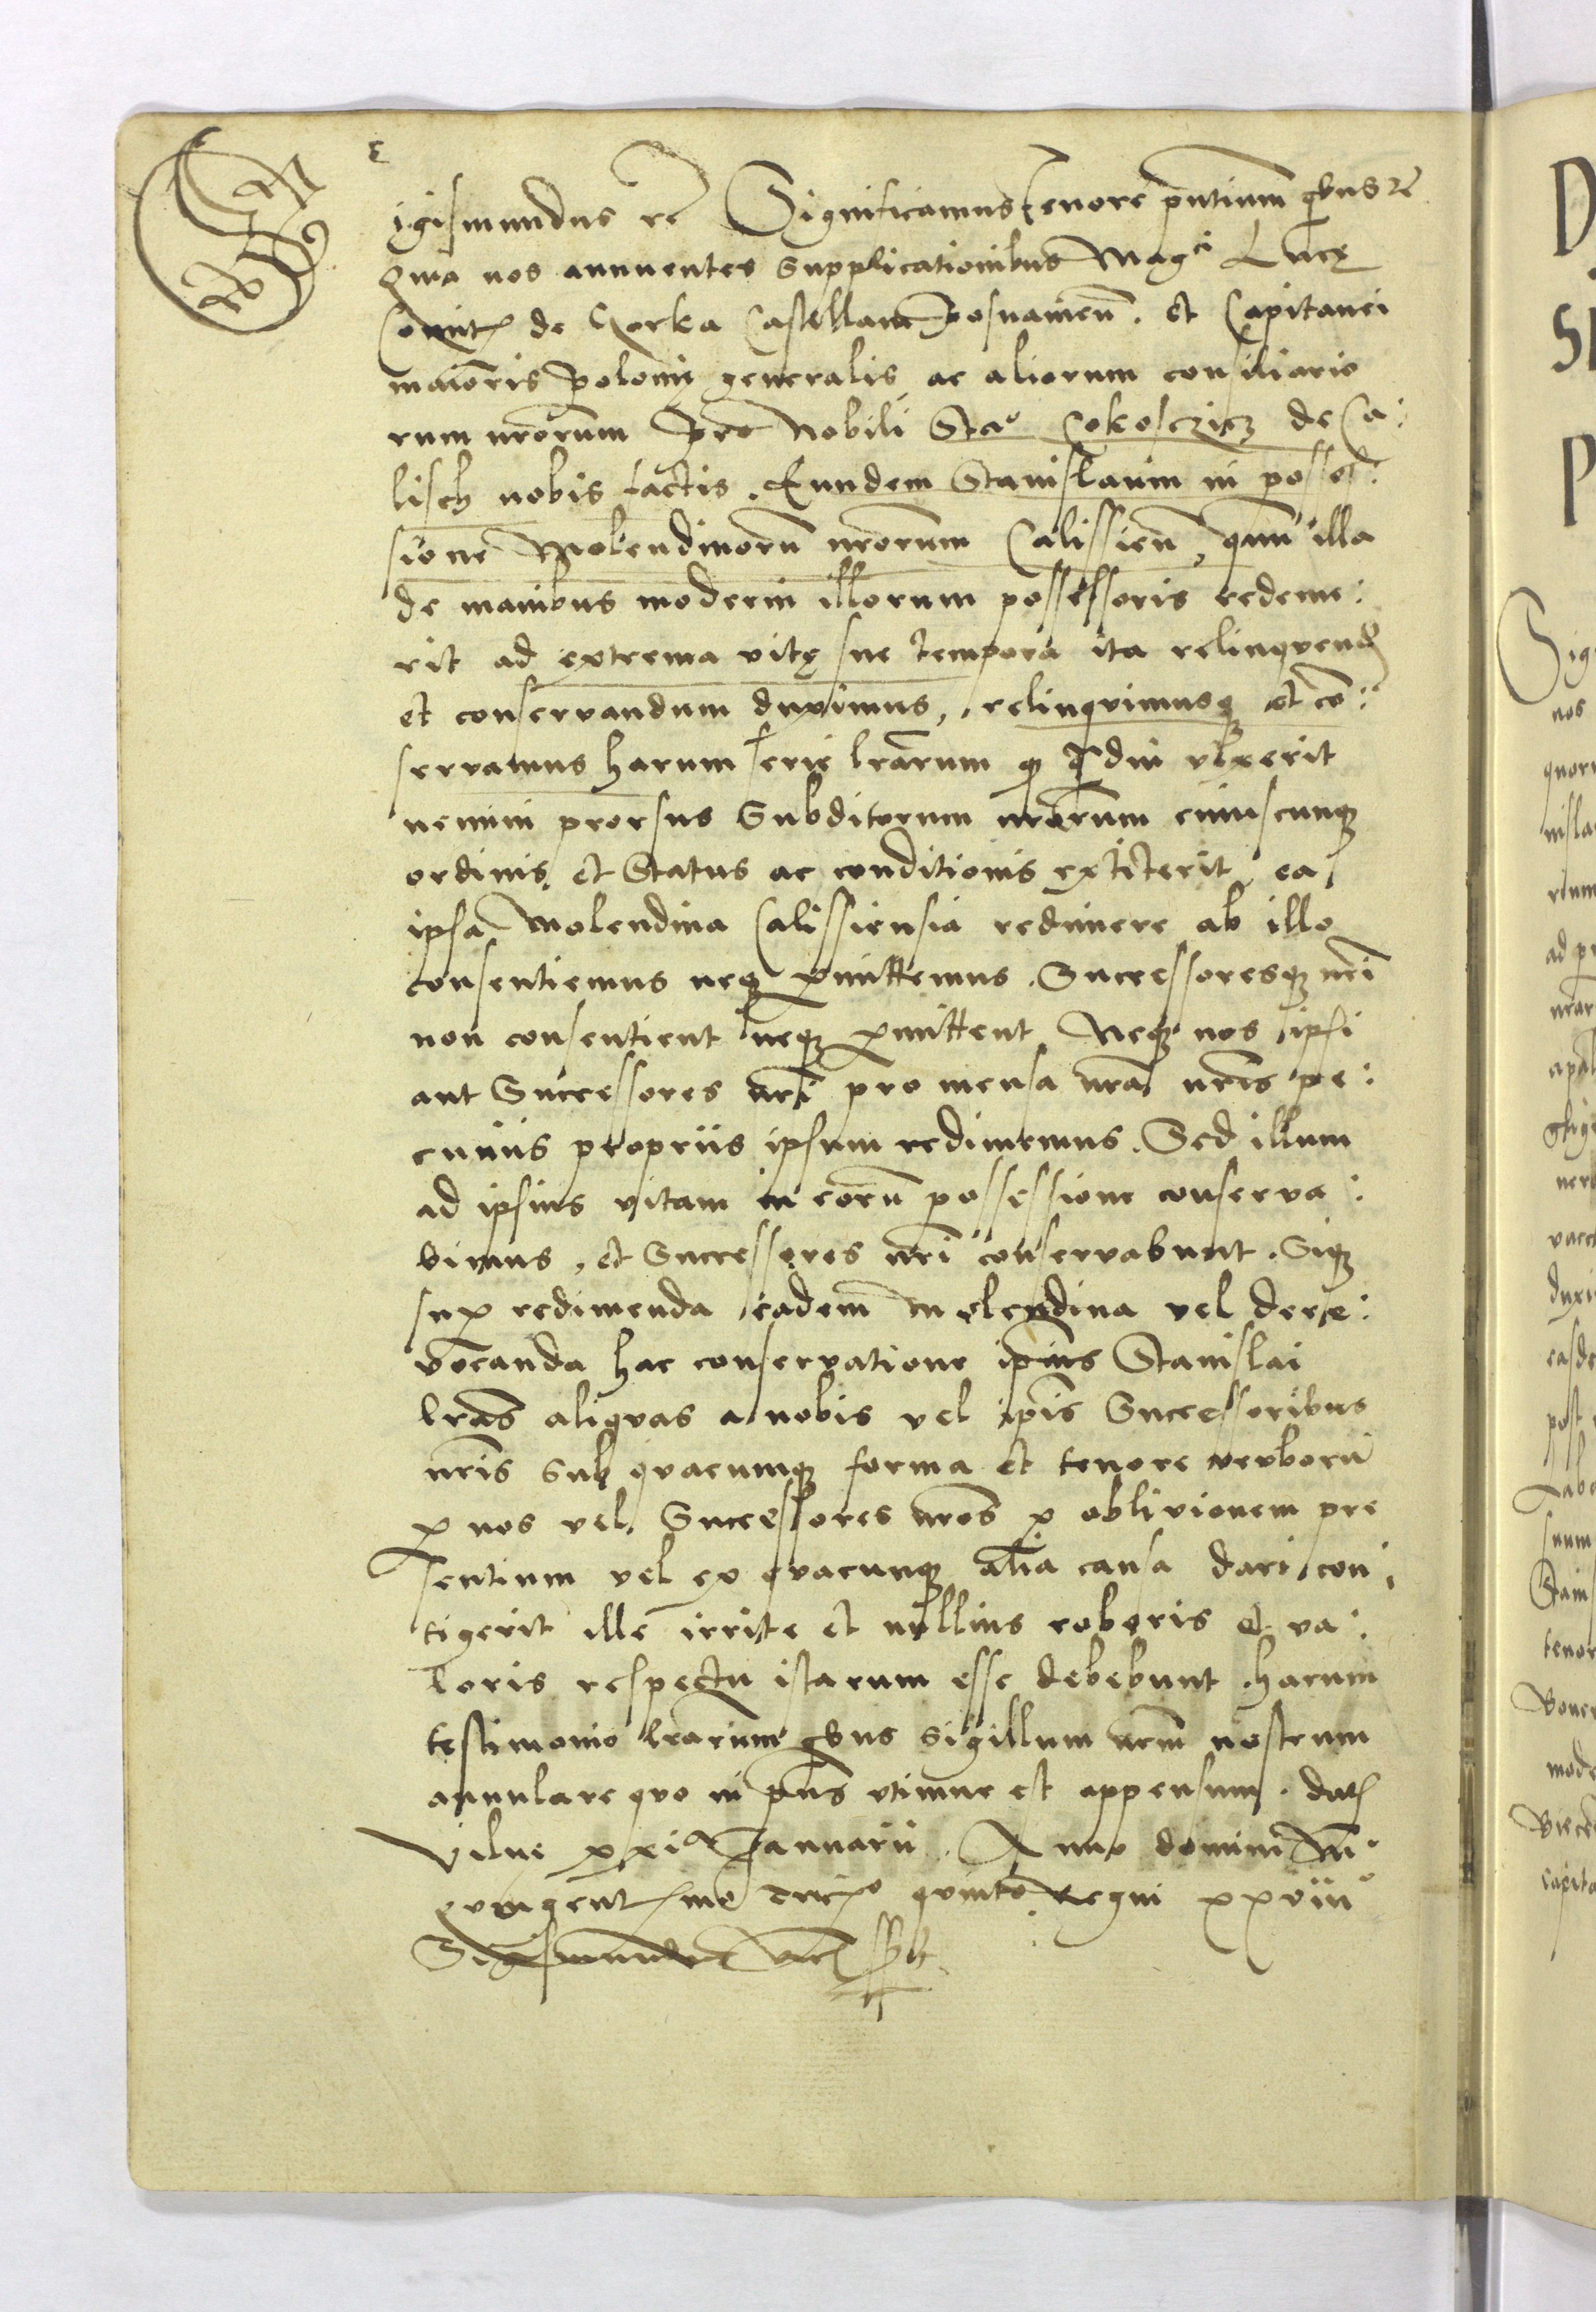 Sigismundus rc Significamus tenore pntium qbus rc
Qma nos annuentes Supplicationibus Magci Lucę
Comit de Gorka Castellani Posnanien. et Capitanei
maioris Polonię generalis ac aliorum consiliario
rum nrorum Pro Nobili Stao Cokosczicz de Ca:
lisch nobis factis. Eundem Stanislaum in posses:
sione Molendinoru nrorum Calissien, quu illa
de manibus moderni illorum possessoris redeme:
rit ad extrema vitę sue tempora ita relinqvend
et conservandum duximus, relinqvimusq et co:
servamus harum serie lrarum q qdiu vixerit
nemini prorsus Subditorum nrorum cuiuscunq
ordinis et Status ac conditionis extiterit ea
ipsa Molendina Calissiensia redimere ab illo
consentiemus neq pmittemus. Successoresq nri
non consentient neq pmittent Neq nos ipsi
aut Successores nri pro mensa nra nris pe:
cuniis propriis ipsum redimemus. Sed illum
ad ipsius vitam in eoru possessione conserva:
bimus, et Successores nri conservabunt. Siq
sup redimenda eadem Molendina vel de re:
vocanda hac conservatione ipius Stanislai
lras aliqvas a nobis vel ipis Successoribus
nris sub qvacumq forma et tenore verboru
p nos vel Successores nros p oblivionem pre
sentium vel ex qvacunq alia causa dari con:
tigerit ille irrite et nullius roboris et va:
loris respectu istarum esse debebunt. harum
testimonio lrarum qbus sigillum nrm nostrum
annulare qvo in pns utimur est appensum. dat
Vilne xxia Januarii. Anno domini Mo
qvingentmo Tricmo qvinto Regni xxviiio
Sigismundus Rex sspt